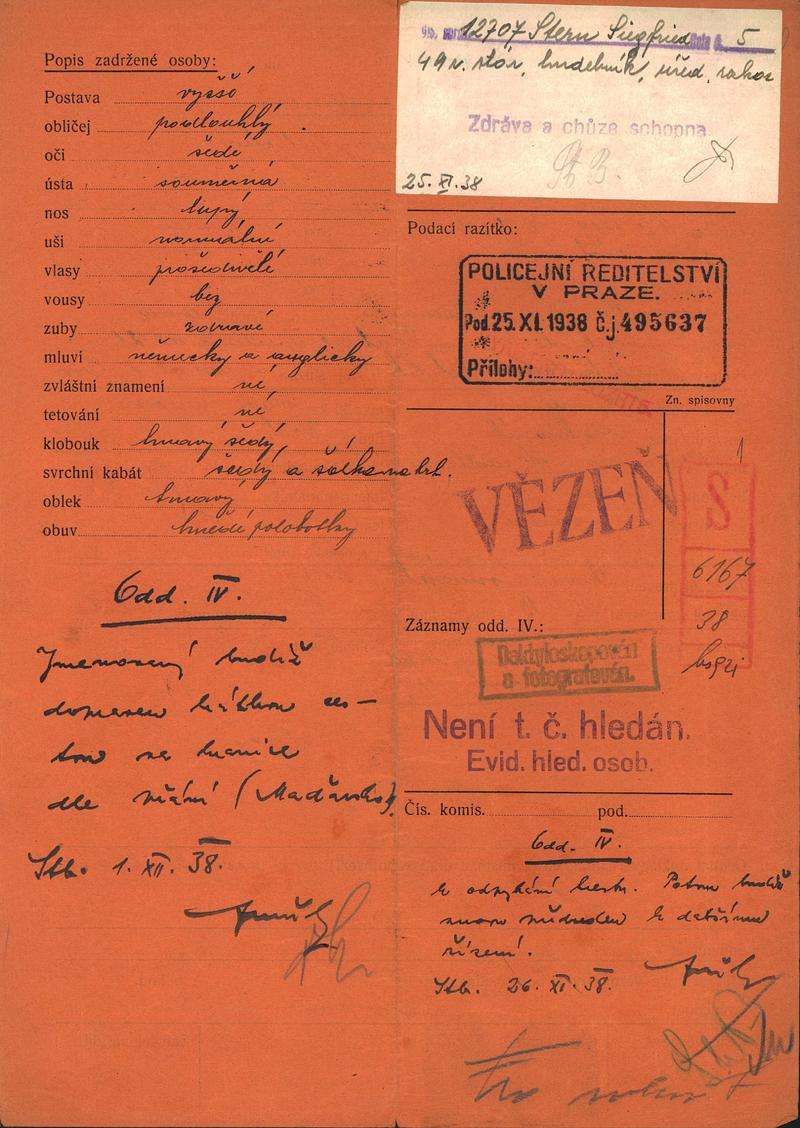 Popis zadržené osoby:
Postava vyšší
obličej podlouhlý
oči šedé
ústa souměrná
nos tupý
uši normální
vlasy prošedivělé
vousy bez
zuby zdravé
mluví německy a anglicky
zvláštní znamení né
tetování né
klobouk tmavý šedý
svrchní kabát šedý a
oblek tmavý
obuv hnedé polobotky
Odd. IV.
Jmenovaný budiž
dopraven
na hranice
dle přání (Maďarsko).
Stb. 1. XII. 38.
12707 Stern Siegfried 5
49 r. stár, hudebník, úřed.
Zdráva a chůze schopna
25. XI. 38
Podací razítko:
POLICEJNÍ ŘEDITELSTVÍ
V PRAZE.
Pod. 25. XI. 1938 č.j. 495637
Přílohy:
Zn. spisovny
1
VĚZEŇ
S
6167
38
Záznamy odd. IV.:
Daktyloskopován
a fotografován.
Není t. č. hledán.
Evid. hled. osob.
Čís. komis. pod.
Odd. IV.
k odpykání trestu. Potom budiž
znovu předveden k dalšímu
řízení.
Stb. 26. XI. 38.